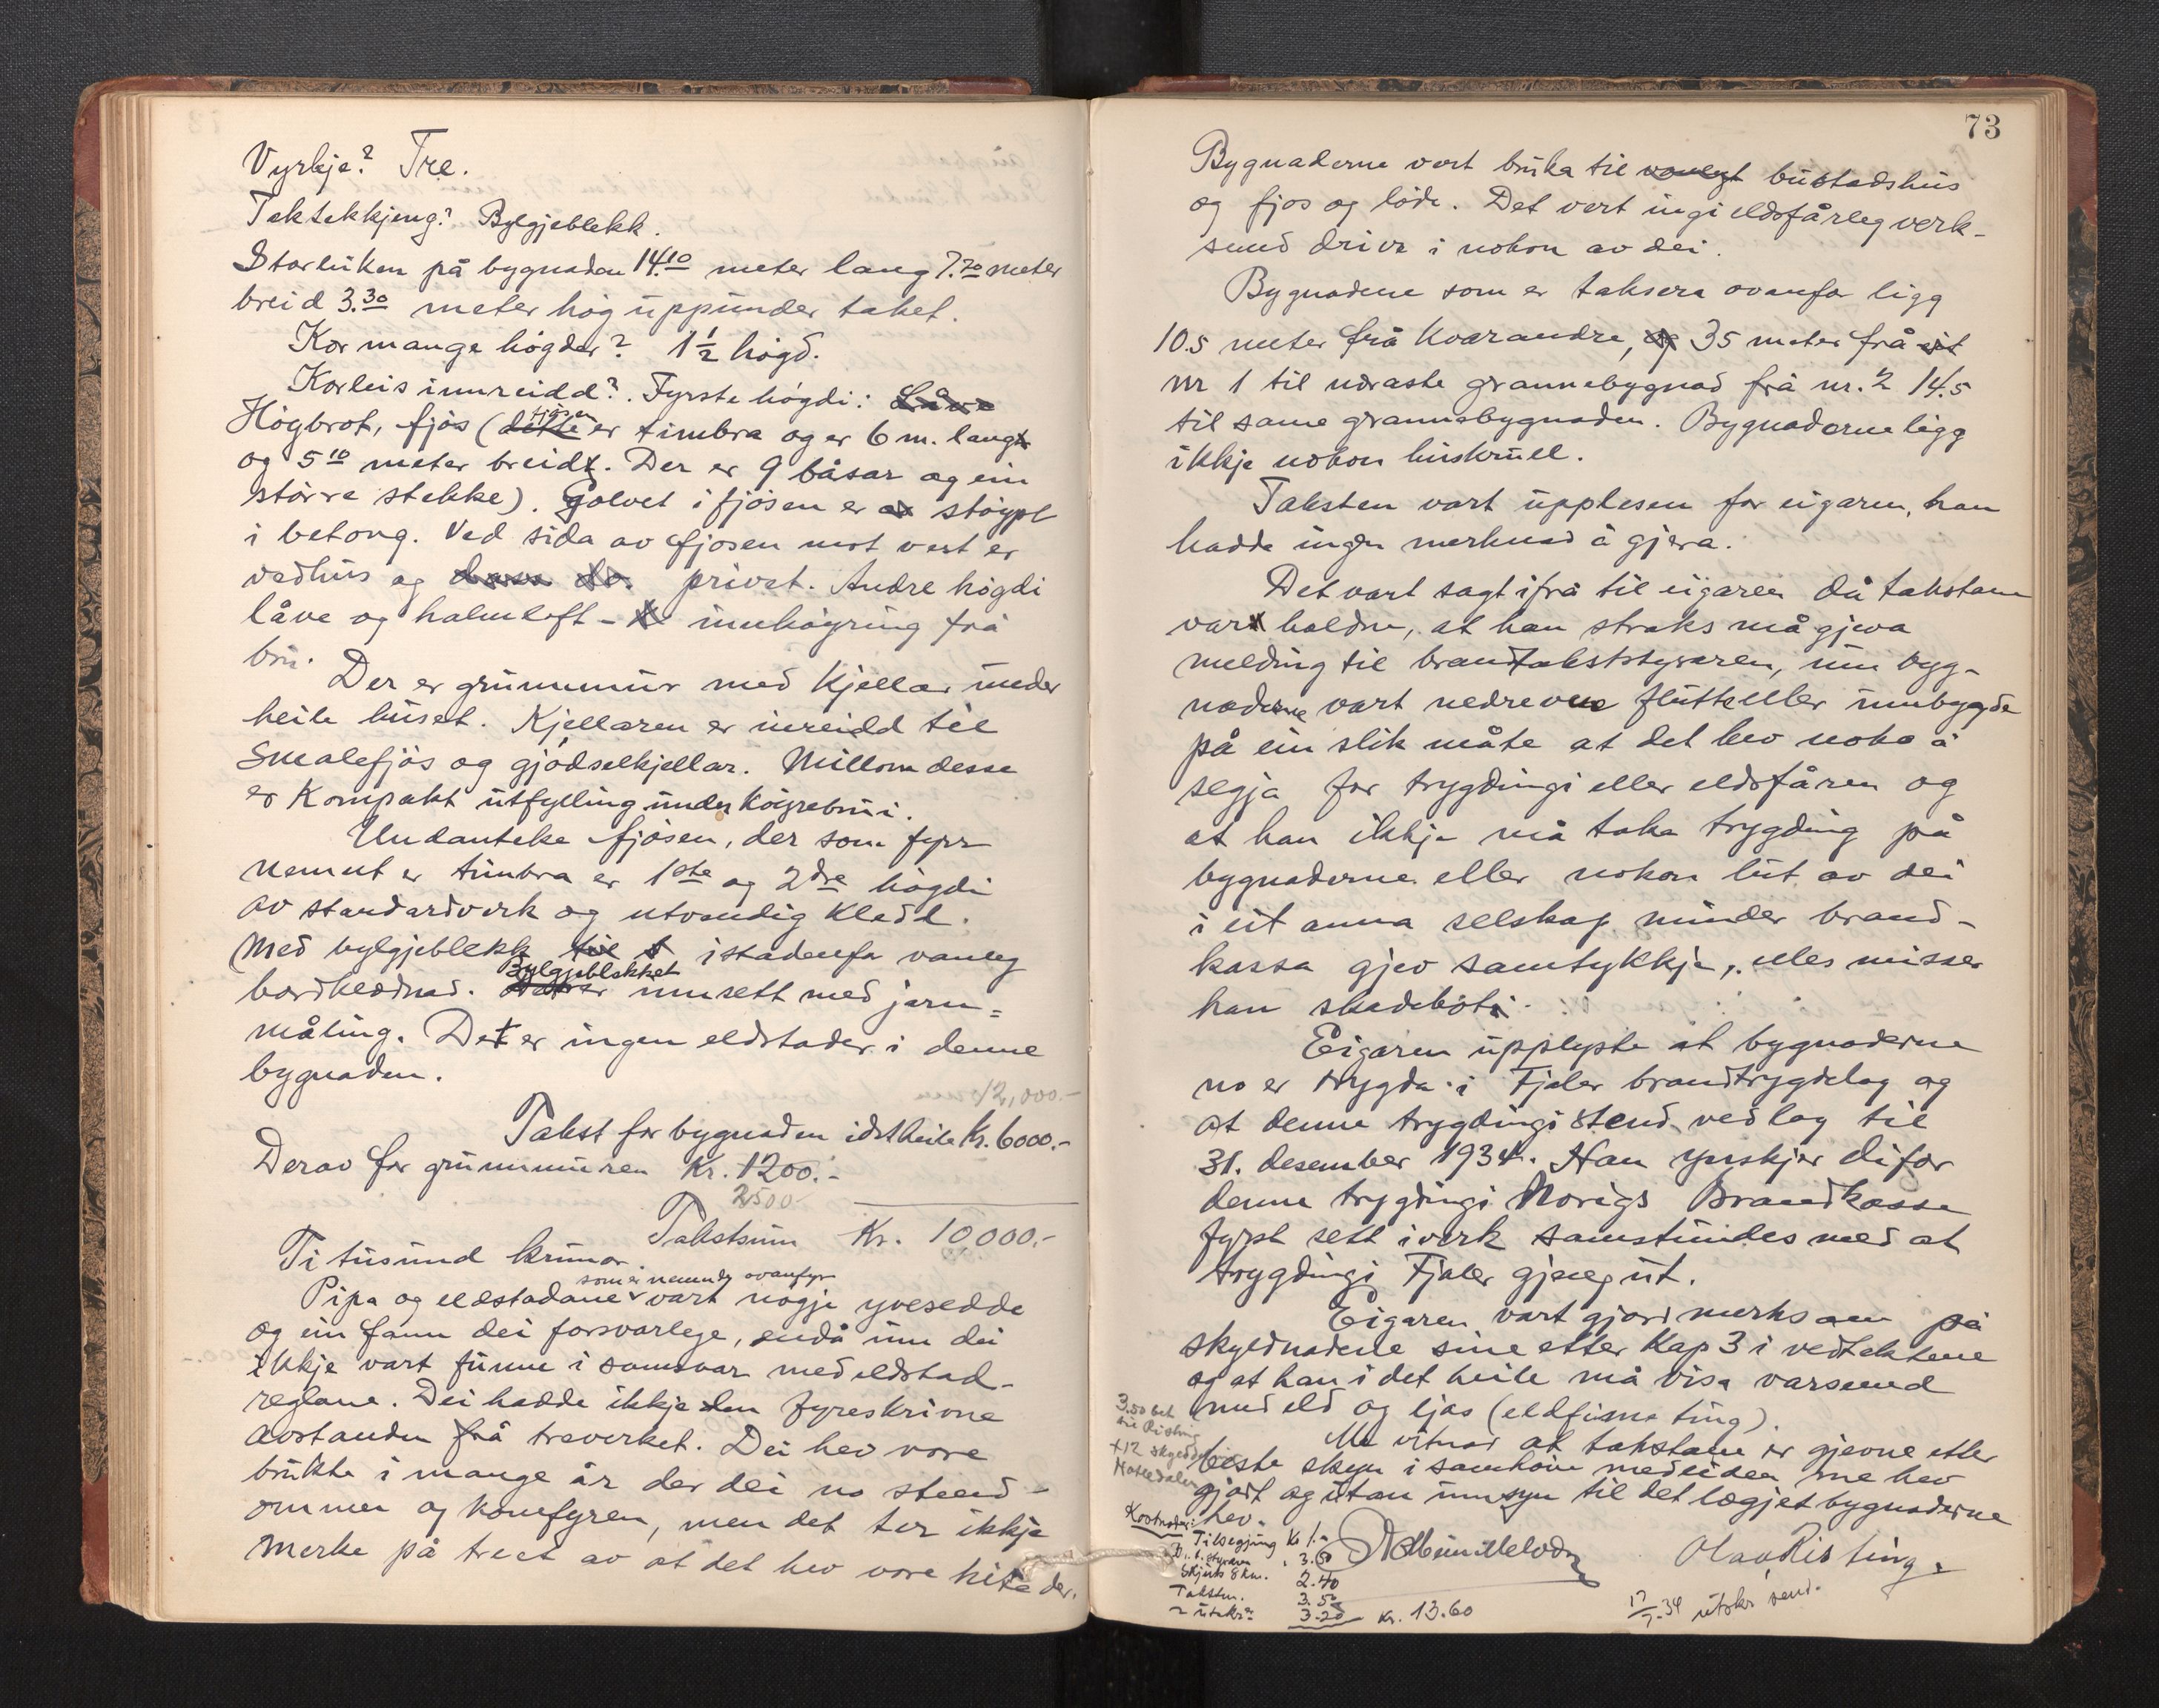 Vyrkje? Tre.
Taktekkjeng? Bylgjeblekk.
Storleiken på bygnaden 14.10 meter lang 7.70 meter
breid 3.30 meter høg uppunder taket.
Kor mange høgder? 1 1/2 høgd.
Korleis innreidd? Fyrste høgdi: Låve
Høgbrot, fjøs (dette fjøsen er timbra og er 6 m. langt
og 5 10 meter breidt. Der er 9 båsar og ein
større stekke). Golvet i fjøsen er støypt
i betong. Ved sida av fjøsen mot vest er
vedhus og dass do. privet. Andre høgdi
låve og halmloft - innkøyring frå
bru.
Der er grunnmur med kjellar under
heile huset. Kjellaren er inreidd til
Smalefjøs og gjødselkjellar. Millom desse
er kompakt utfylling under køyrebrui.
Undanteke fjøsen, der som fyrr
nemnt er timbra er 1ste og 2dre høgdi
av standardverk og utvendig kledd.
Med bylgjeblekk til istadenfor vanleg
bordklædnad. Bylgjeblekket er innsett med jarn=
måling. Det er ingen eldstader i denne
bygnaden.
12,000.-
Takst for bygnaden i det heile Kr. 6000.-
Derav for grunnmuren Kr. 1200.-
2500
Takstsum Kr. 10,000.-
Ti tusund krunor.
som er nemnde ovanfyr
Pipa og eldstadane vart nøgje yvesedde
og ein fann dei forsvarlege, endå um dei
ikkje vart funne i samsvar med eldstad-
reglane. Dei hadde ikkje den fyreskrivne
avstanden frå treverket. Dei hev vore
brukte i mange år der dei no stend -
omnen og komfyren, men det ter ikkje
merke på treet av at det hev vore hita der.
73
Bygnaderne vert bruka til vanlegt bustadshus
og fjos og løde. Det vert ingi eldsfårleg verk-
semd drive i nokon av dei.
Bygnadene som er taksera ovanfor ligg
10.5 meter frå kvarandre, og 35 meter frå eit
nr 1 til næraste grannebygnad frå nr. 2 14.5
til same grannebygnaden. Bygnaderne ligg
ikkje nokon huskrull.
Taksten vart upplesen for eigaren, han
hadde ingen merknad å gjera.
Det vart sagt ifrå til eigaren då takstane
vart haldne, at han straks må gjeva
melding til brandtakststyraren, um byg-
naderne vart nedrevne flutt eller umbygde
på ein slik måte at det hev noko å
segja for trygdingi eller eldsfåren og
at han ikkje må taka trygding på
bygnaderne eller nokon lut av dei
i eit anna selskap minder brand-
kassa gjev samtykkje, elles misser
han skadebøti.
Eigaren upplyste at bygnaderne
no er trygda i Fjaler brandtrygdelag og
at denne trygdingi stend ved lag til
31. desember 1934. Han ynskjer difor
denne trygdingi Norigs Brandkasse
fyrst sett i verk samstundes med at
trygdingi Fjaler gjeng ut.
Eigaren vart gjord merksam på
skyldnadene sine etter Kap 3 i vedtektene
og at han i det heile må visa varsemd
med eld og ljos (eldfisme ting).
Me vitnar at takstane er gjevne etter
beste skyn i samhøve med eiden me hev
gjørt og utan umsyn til det lægjet bygnaderne
hev.
3.50 bet
til Risting
+12
Kostnader:
Tilsegjing Kr 1.-
B.t.styraren " 3.50
Skjuts 8 km. 2.40
Takstm. 3.50
" utskr. 3.20 Kr. 13.60
Olav Risting.
17/7-34 utskr send.